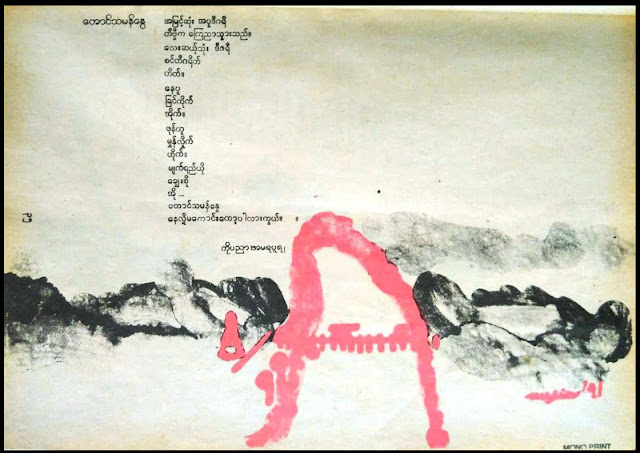 တောင်သမန်နွေ
အမြင့်ဆုံး အပူဒီဂရီ
တီဗွီက ကြေညာသွားသည်။
လေးဆယ့်သုံး ဒီဂရီ
စင်တီဂရိတ်
ဟိတ်။
နေပူ
ခြင်ကိုက်
အိုက်။
ဖုန်ထူ
ဟိုက်။
မျက်ရည်ယို
ချွေးစို
အို ...
တောင်သမန်နွေ
နေလို့မကောင်းတော့ပါလားကွယ်။ ။
ကိုပညာ(အမရပူရ)
MONO PRINT